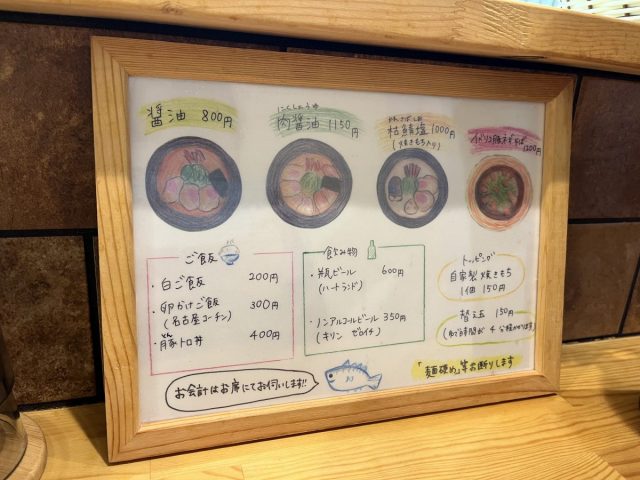 醤油 800円
にくしょうゆ
肉醤油 1150円
かれさばしお
枯鯖塩 1000円
(焼きもち入り)
イベリコ豚ネギそば
1200円
ご飯
・白ご飯 200円
・卵かけご飯 300円
(名古屋コーチン)
・豚トロ丼 400円
飲み物
・瓶ビール 600円
(ハートランド)
・ノンアルコールビール 350円
(キリン ゼロイチ)
トッピング
自家製焼きもち
1個 150円
替え玉 150円
お会計はお席にてお伺いします!!
「麺硬め」等お断りします